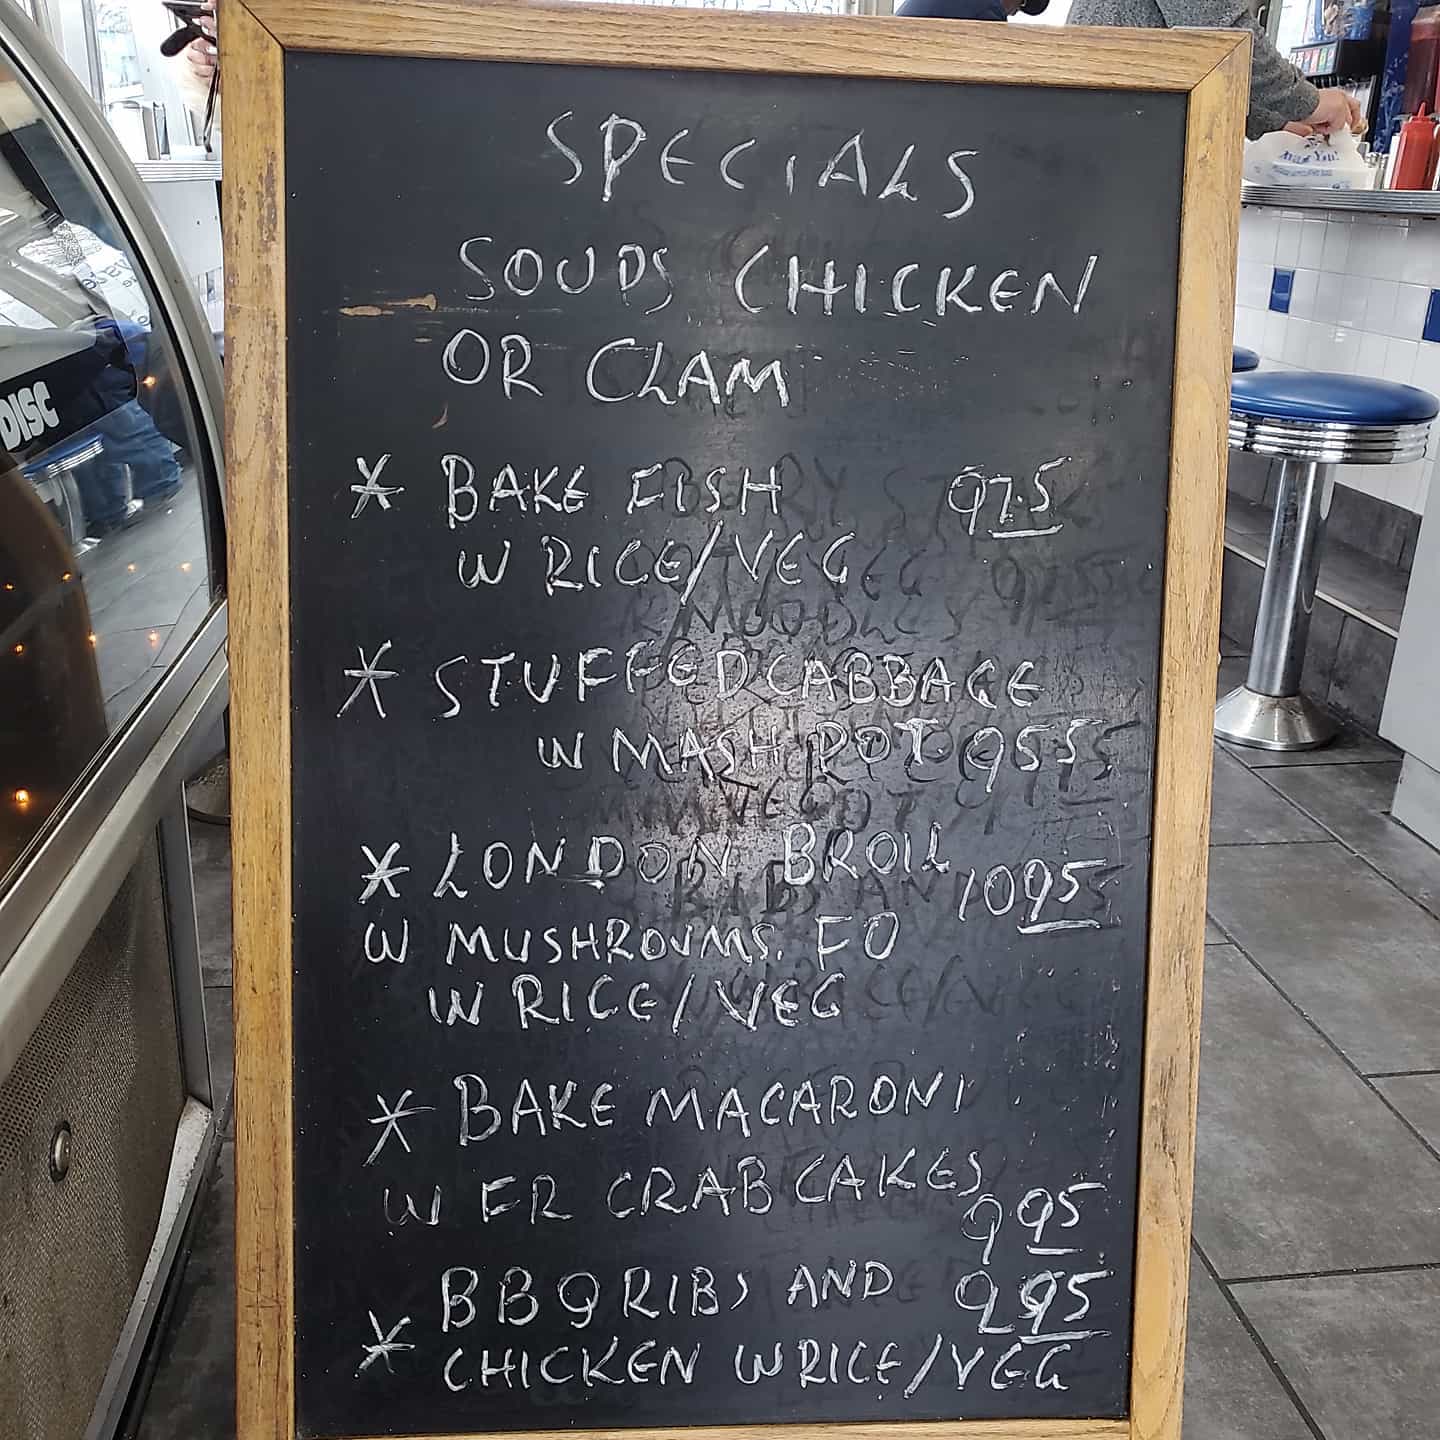 SPECIALS
SOUPS CHICKEN
OR CLAM
* BAKE FISH 975
W RICE/VEG
* STUFFED CABBAGE
W MASH POT. 955
* LONDON BROIL 1095
W MUSHROUMS. FO
W RICE/VEG
* BAKE MACARONI
W FR CRAB CAKES
995
BBQ RIBS AND 995
* CHICKEN W RICE/VEG
DISC